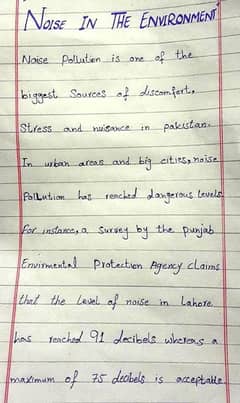 NOISE IN THE ENVIRONMENT
Noise Pollution is one of the
biggest Sources of discomfort,
Stress and nuisance in pakistan.
In urban areas and big cities, noise
Pollution has reached dangerous levels
For instance, a survey by the punjab
Envirmental Protection Agency claims
that the level of noise in Lahore
has reached 91 decibels whereas a
maximum of 75 decibels is acceptable